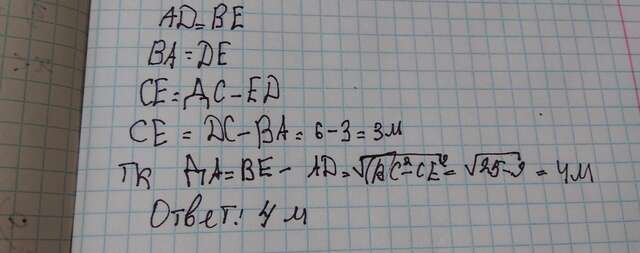 AD=BE
BA=DE
CE=ДC-ED
CE=DC-BA=6-3=3м
Тк ДА=BE-AD=√BC²-CE²=√25-9=4м
Ответ: 4 м